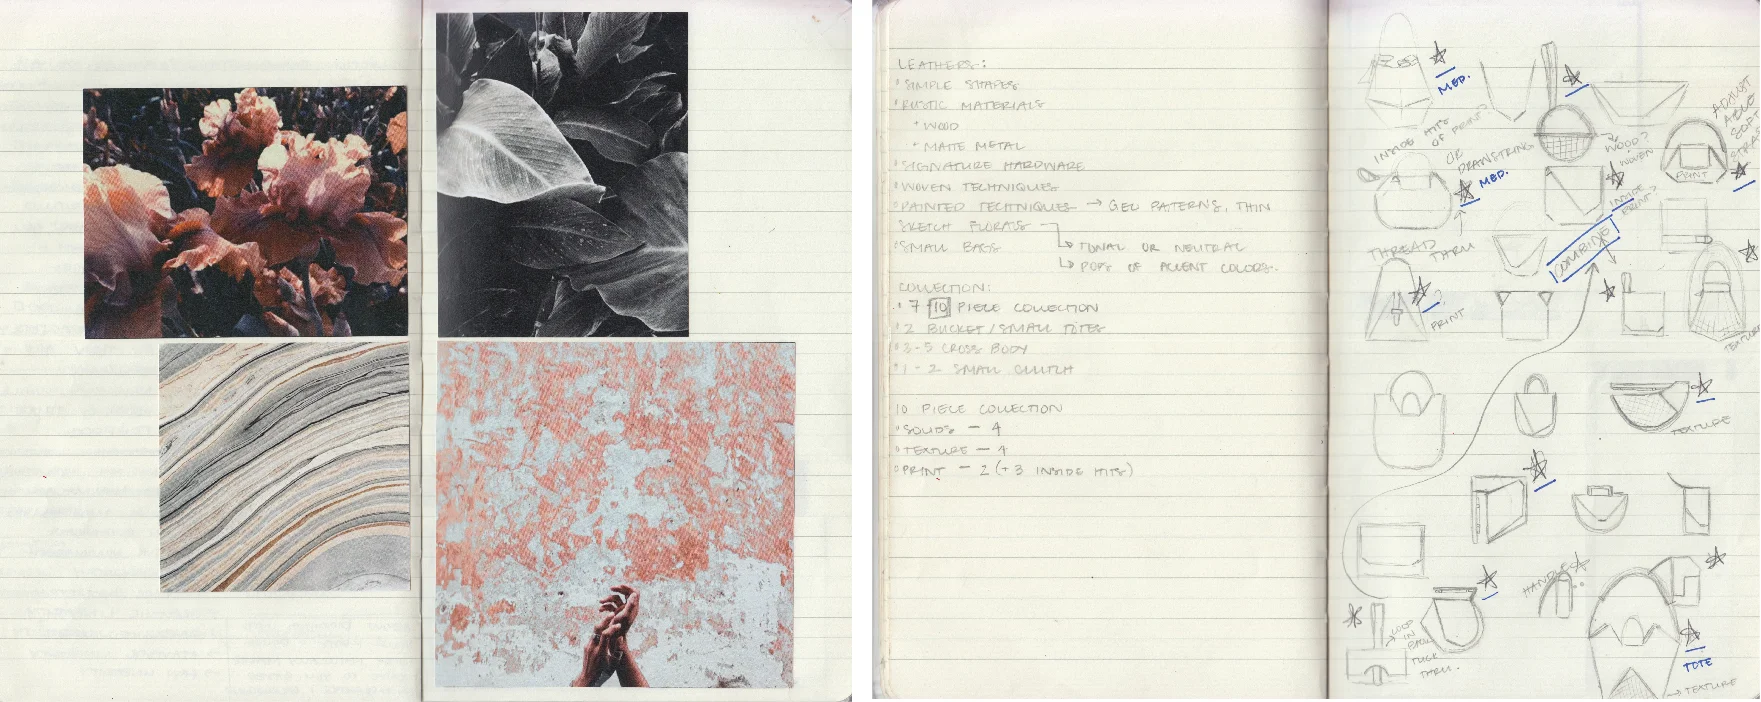 LEATHERS:
• SIMPLE SHAPES
• RUSTIC MATERIALS
• WOOD
• MATTE METAL
• SIGNATURE HARDWARE
• WOVEN TECHNIQUES
• PAINTED TECHNIQUES → GEO PATERNS, THIN
SKETCH FLORALS
↳ TONAL OR NEUTRAL
• SMALL BAGS
↳ POPS OF ACCENT COLORS.
COLLECTION:
• 7 10 PIECE COLLECTION
• 2 BUCKET/SMALL TOTES
• 3-5 CROSS BODY
• 1-2 SMALL CLUTCH
10 PIECE COLLECTION
• SOLIDS - 4
• TEXTURE - 4
• PRINT - 2 (+3 INSIDE HITS)
MED.
ADJUST
ABLE
STRAP
INSIDE HITS
OF PRINT?
OR
DRAWSTRING
MED.
WOOD?
WOVEN
PRINT
INSIDE
PRINT?
THREAD
THRU
COMBINE
?
PRINT
TEXTURE
TEXTURE
HANDLES
LOOP
IN
BACK
TUCK
THRU.
TOTE
→ TEXTURE